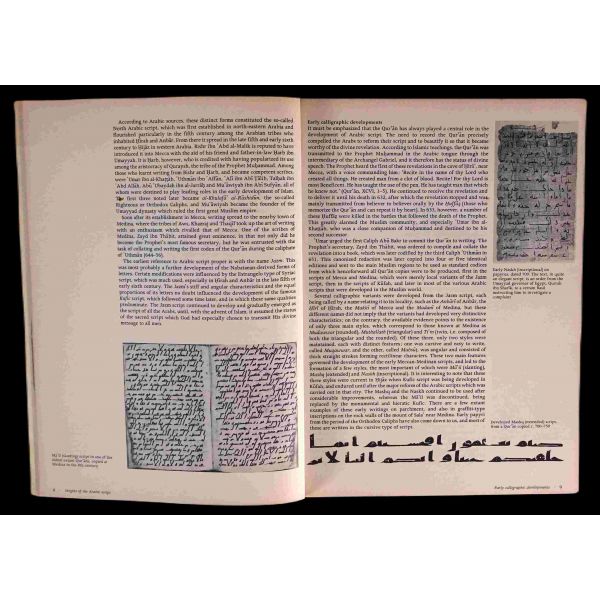 According to Arabic sources, these distinct forms constituted the so-called
North Arabic script, which was first established in north-eastern Arabia and
flourished particularly in the fifth century among the Arabian tribes who
inhabited Ḥīrah and Anbār. From there it spread in the late fifth and early sixth
century to Ḥijāz in western Arabia. Bishr ibn ʿAbd al-Malik is reputed to have
introduced it into Mecca with the aid of his friend and father-in-law Ḥarb ibn
Umayyah. It is Ḥarb, however, who is credited with having popularized its use
among the aristocracy of Quraysh, the tribe of the Prophet Muḥammad. Among
those who learnt writing from Bishr and Ḥarb, and became competent scribes,
were ʿUmar ibn al-Khaṭṭāb, ʿUthmān ibn ʿAffān, ʿAlī ibn Abī Ṭālib, Ṭalḥah ibn
ʿAbd Allāh, Abū ʿUbaydah ibn al-Jarrāḥ and Muʿāwiyah ibn Abī Sufyān, all of
whom were destined to play leading roles in the early development of Islam.
The first three noted later became al-Khulafāʾ al-Rāshidūn, the so-called
Righteous or Orthodox Caliphs, and Muʿāwiyah became the founder of the
Umayyad dynasty which ruled the first great Muslim empire.
Soon after its establishment in Mecca, writing spread to the nearby town of
Medina, where the tribes of Aws, Khazraj and Thaqīf took up the art of writing
with an enthusiasm which rivalled that of Mecca. One of the scribes of
Medina, Zayd ibn Thābit, attained great eminence, in that not only did he
become the Prophet's most famous secretary, but he was entrusted with the
task of collating and writing the first codex of the Qurʾān during the caliphate
of ʿUthmān (644–56).
The earliest reference to Arabic script proper is with the name Jazm. This
was most probably a further development of the Nabataean-derived forms of
letters. Certain modifications were influenced by the Estrangelo type of Syriac
script, which was much used, especially in Ḥīrah and Anbār in the late fifth or
early sixth century. The Jazm's stiff and angular characteristics and the equal
proportions of its letters no doubt influenced the development of the famous
Kufic script, which followed some time later, and in which these same qualities
predominate. The Jazm script continued to develop and gradually emerged as
the script of all the Arabs, until, with the advent of Islam, it assumed the status
of the sacred script which God had especially chosen to transmit His divine
message to all men.
Māʾil (slanting) script in one of the
oldest extant Qurʾāns, copied at
Medina in the 8th century
8 Origins of the Arabic script
Early calligraphic developments
It must be emphasized that the Qurʾān has always played a central role in the
development of Arabic script. The need to record the Qurʾān precisely
compelled the Arabs to reform their script and to beautify it so that it became
worthy of the divine revelation. According to Islamic teachings, the Qurʾān was
transmitted to the Prophet Muḥammad in the Arabic tongue through the
intermediary of the Archangel Gabriel, and it therefore has the status of divine
speech. The Prophet heard the first of these revelations in the cave of Ḥirāʾ, near
Mecca, with a voice commanding him: 'Recite in the name of thy Lord who
created all things. He created man from a clot of blood. Recite! For thy Lord is
most Beneficent. He has taught the use of the pen. He has taught man that which
he knew not.' (Qurʾān, XCVI, 1–5). He continued to receive the revelation and
to deliver it until his death in 632, after which the revelation stopped and was
mainly transmitted from believer to believer orally by the Ḥuffāẓ (those who
memorize the Qurʾān and can repeat it by heart). In 633, however, a number of
these Ḥuffāẓ were killed in the battles that followed the death of the Prophet.
This greatly alarmed the Muslim community, and especially ʿUmar ibn al-
Khaṭṭāb, who was a close companion of Muḥammad and destined to be his
second successor.
ʿUmar urged the first Caliph Abū Bakr to commit the Qurʾān to writing. The
Prophet's secretary, Zayd ibn Thābit, was ordered to compile and collate the
revelation into a book, which was later codified by the third Caliph ʿUthmān in
651. This canonized redaction was later copied into four or five identical
editions and sent to the main Muslim regions to be used as standard codices
from which henceforward all Qurʾān copies were to be produced, first in the
scripts of Mecca and Medina, which were merely local variants of the Jazm
script, then in the scripts of Kūfah, and later in most of the various Arabic
scripts that were developed in the Muslim world.
Several calligraphic variants were developed from the Jazm script, each
being called by a name relating it to its locality, such as the Anbārī of Anbār, the
Ḥīrī of Ḥīrah, the Makkī of Mecca and the Madanī of Medina, but these
different names did not imply that the variants had developed very distinctive
characteristics; on the contrary, the available evidence points to the existence
of only three main styles, which correspond to those known at Medina as
Mudawwar (rounded), Muthallath (triangular) and Tiʾm (twin, i.e. composed of
both the triangular and the rounded). Of these three, only two styles were
maintained, each with distinct features: one was cursive and easy to write,
called Muqawwar, and the other, called Mabsūṭ, was angular and consisted of
thick straight strokes forming rectilinear characters. These two main features
governed the development of the early Meccan-Medinan scripts, and led to the
formation of a few styles, the most important of which were Māʾil (slanting),
Mashq (extended) and Naskh (inscriptional). It is interesting to note that these
three styles were current in Ḥijāz when Kufic script was being developed in
Kūfah, and endured until after the major reform of the Arabic scripts which was
carried out in that city. The Mashq and the Naskh continued to be used after
considerable improvements, whereas the Māʾil was discontinued, being
replaced by the monumental and hieratic Kufic. There are a few extant
examples of these early writings on parchment, and also in graffiti-type
inscriptions on the rock walls of the mount of Salaʿ near Medina. Early papyri
from the period of the Orthodox Caliphs have also come down to us, and most of
these are written in the cursive type of script.
Early Naskh (inscriptional) on
papyrus, dated 709. The text, in quite
an elegant script, is an order from the
Umayyad governor of Egypt, Qurrah
ibn Sharīk, to a certain Basil
instructing him to investigate a
complaint
Developed Mashq (extended) script,
from a Qurʾān copied c. 700–750
Early calligraphic developments 9